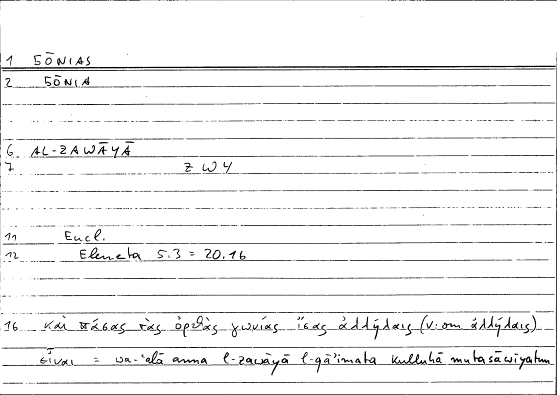 1 GŌNIAS
2 GŌNIA
6 AL-ZAWĀYĀ
7 Z W Y
11 Eucl.
12 Elementa 5.3 = 20.16
16 καὶ πάσας τὰς ὀρθὰς γωνίας ἴσας ἀλλήλαις (v: om. ἀλλήλαις)
εἶναι = wa-ʿalā anna l-zawāyā l-qāʾimata kulluhā mutasāwiyatun